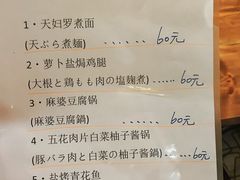 1·天妇罗煮面
(天ぷら煮麺) ...... 60元
2·萝卜盐焗鸡腿
(大根と鶏もも肉の塩麹煮) ..... 60元
3·麻婆豆腐锅
(麻婆豆腐鍋) ...... 60元
4·五花肉片白菜柚子酱锅
(豚バラ肉と白菜の柚子醤鍋) ... 60元
5·盐烤青花鱼